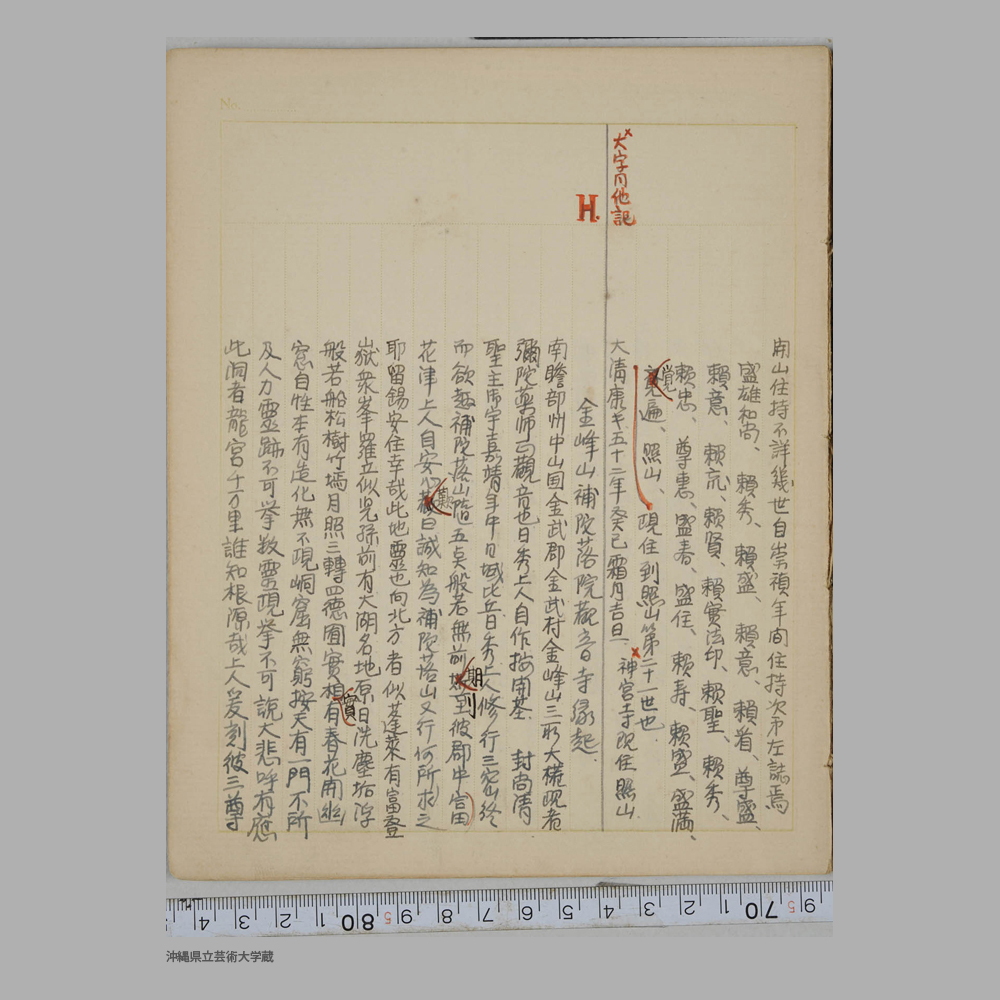 開山住持不詳幾世自崇禎年間住持次第左誌焉
盛雄和尚、頼秀、頼盛、頼意、頼着、尊盛、
頼意、頼元、頼賢、頼實法印、頼聖、頼秀、
頼忠、尊恵、盛春、盛住、頼寿、頼盛、盛満、
覚遍、照山、現住到照山第二十一世也
大清康キ五十二年癸巳霜月吉旦 神宮寺現住照山
×大字月他記
H.
金峰山補陀落院觀音寺縁起
南瞻部州中山国金武郡金武村金峰山三所大權現者
彌陀薬師正觀音也日秀上人自作按開基 封尚清
聖主帝宇嘉靖年中日域比丘日秀上人修行三密終
而欲趣補陀落山隨五点般若無前期到彼郡中富
花津上人自安心歎曰誠知為補陀落山又行何所求之
耶留錫安住幸哉此地靈也向北方者似蓬莱有富登
嶽衆峯羅立似児孫前有大湖名地原日洗塵垢浮
般若船松樹竹塙月照三轉四德圓實相有春花開幽
窓自性本有造化無不現峒窟無窮按天有一門不所
及人力靈跡不可挙数靈現挙不可説大悲呼有應
此洞者龍宮千万里誰知根源哉上人爰刻彼三尊
No.
4 3 2 1 80 9 8 7 6 5 4 3 2 1 70 9
沖縄県立芸術大学蔵